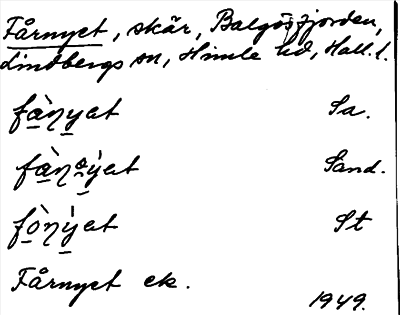 Fårnyet, skär, Balgöfjorden,
Lindbergs sn, Himle hd, Hall. l.
fànyet Sa.
fànəýet Sand.
fònýet St
Fårnyet ek.
1949.